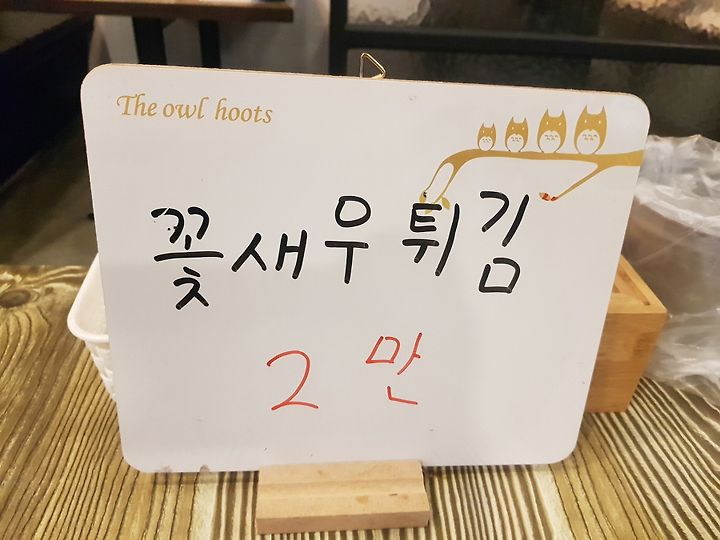 The owl hoots
꽃새우 튀김
2 만